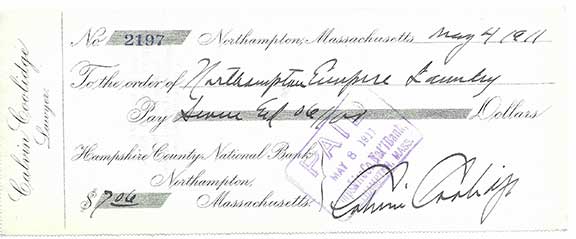 Calvin Coolidge
Lawyer.
No 2197 Northampton, Massachusetts May 4 1911
To the order of Northampton Empire Laundry
Pay Seven & 06/100 Dollars
Hampshire County National Bank
Northampton,
Massachusetts.
$7.06
PAID
MAY 8 1911
MASS.
Calvin Coolidge